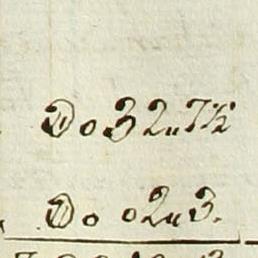 Do 32 „ 7½
Do 02 „ 3.